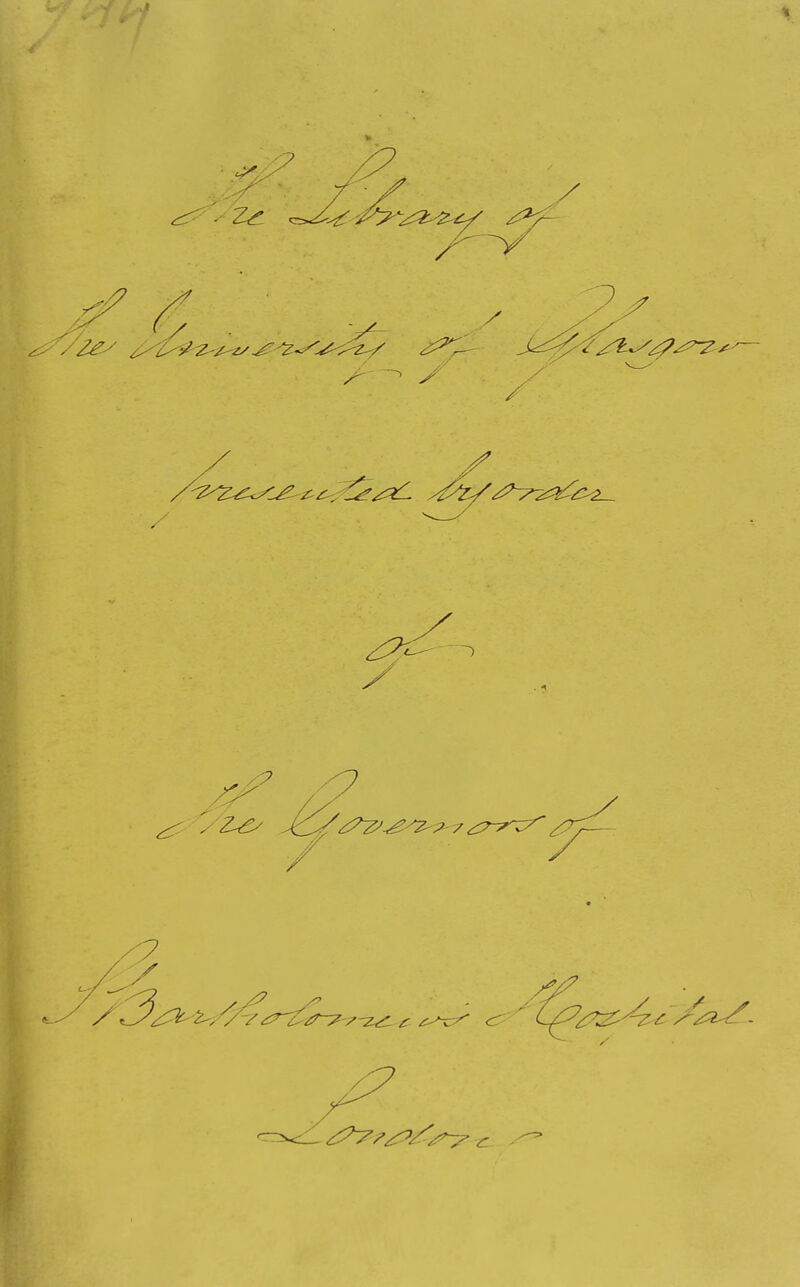 The Library of
The University of Glasgow
presented by order
of
The Governors of
Bartholomew's Hospital.
London